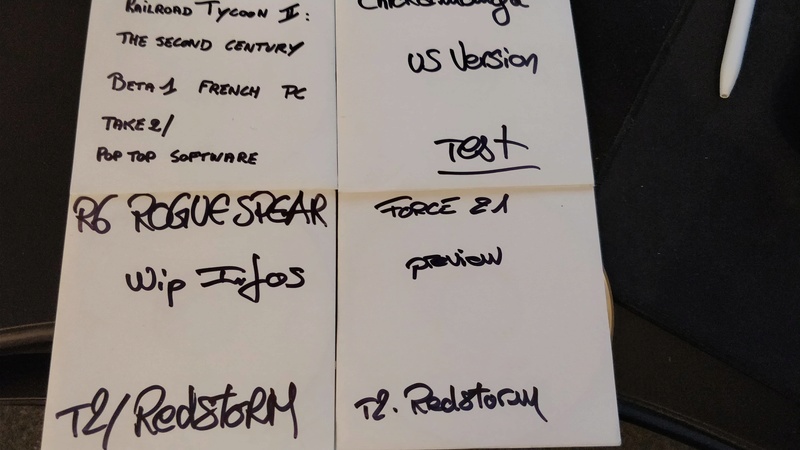 RAILROAD TYCOON II:
THE SECOND CENTURY
BETA 1 FRENCH PC
TAKE 2/
POP TOP SOFTWARE
US Version
Test
R6 ROGUE SPEAR
Wip Infos
T2/ Redstorm
FORCE 21
preview
T2. Redstorm